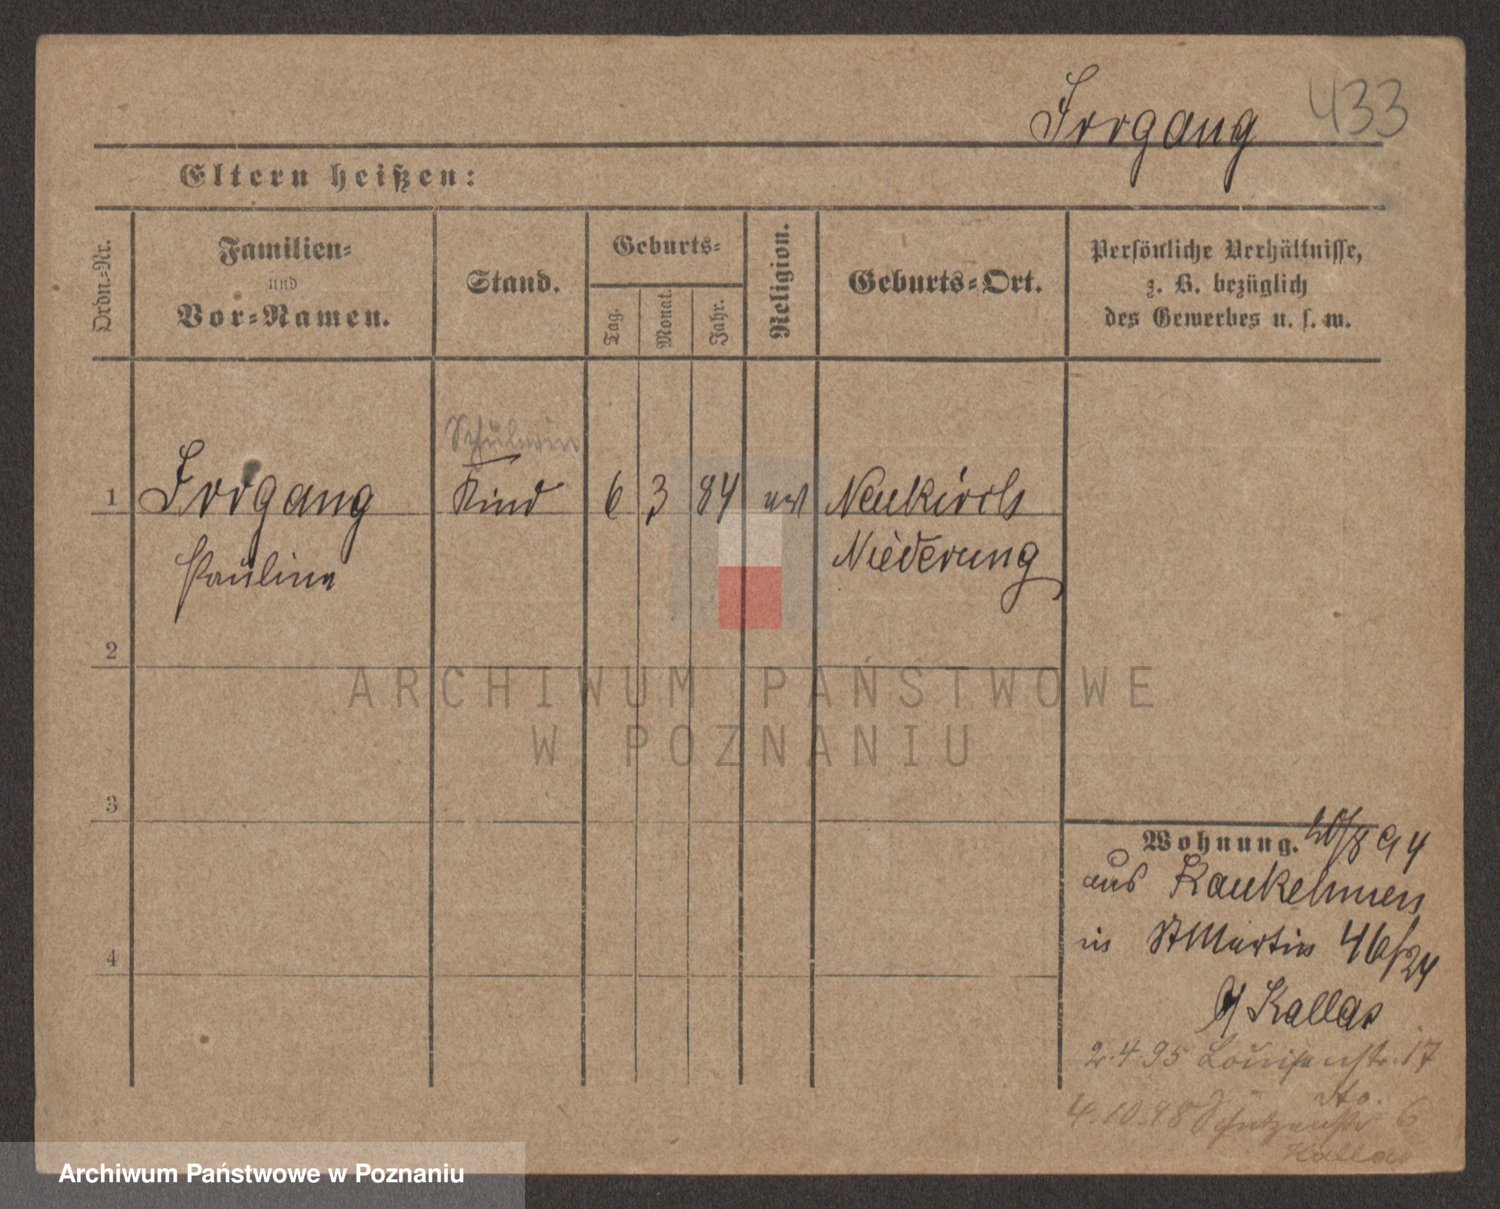 Irrgang 433
Eltern heißen:
Ordn.-Nr.
Familien-
und
Vor-Namen.
Stand.
Geburts-
Tag.
Monat.
Jahr.
Religion.
Geburts-Ort.
Persönliche Verhältnisse,
z. B. bezüglich
des Gewerbes u. s. w.
1 Irrgang Kind 6 3 84 ev Neukirch
Pauline
Niederung
2
ARCHIWUM PAŃSTWOWE
W POZNANIU
3
Wohnung. 20/8 94
aus Kaukehmen
in St Martin 46/24
b/ Kallas
4
2.4 95 Louisenstr. 17
dto.
4.10.98 Schützenstr 6
Kallas
Archiwum Państwowe w Poznaniu